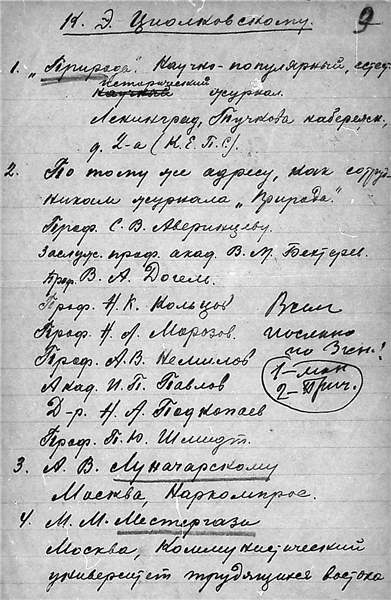 К. Э. Циолковскому. 9
1. „Природа". Научно-популярный, естест-
исторический
научный журнал.
Ленинград, Тучкова набережн.,
д. 2-а (К.Е.П.С.)
2. По тому же адресу, как сотруд-
никам журнала „Природа".
Проф. С. В. Аверинцеву
Заслуж. проф. акад. В. М. Бехтерев.
Проф. В. А. Догель.
Проф. Н. К. Кольцов
Проф. Н. А. Морозов.
Проф. А. В. Немилов
Акад. И. П. Павлов
Д-р. Н. А. Подкопаев
Проф. П. Ю. Шмидт.
Всем
послано
по 3 экз.!
1 – мон
2 – Прич.
3. А. В. Луначарскому
Москва, Наркомпрос.
4. М. М. Местергази
Москва, Коммунистический
университет трудящихся востока